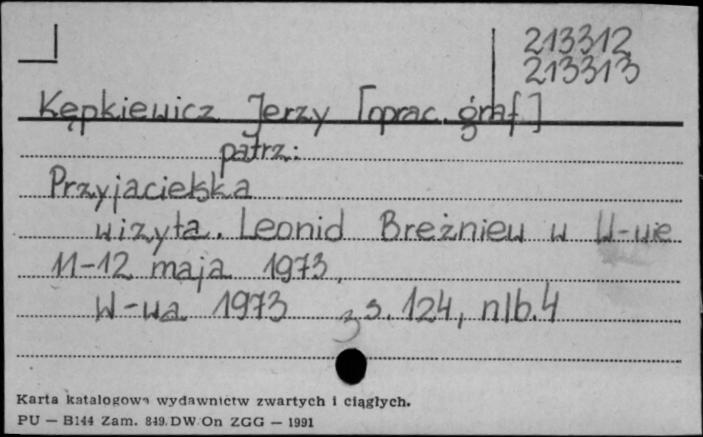 213312
213313
Kępkiewicz Jerzy [oprac. graf]
patrz:
Przyjacielska
wizyta. Leonid Breżniew w W-wie
11-12 maja 1973.
W-wa 1973 s. 124, nlb. 4
3
Karta katalogowa wydawnictw zwartych i ciągłych.
PU — B144 Zam. 849. DW/On ZGG — 1991